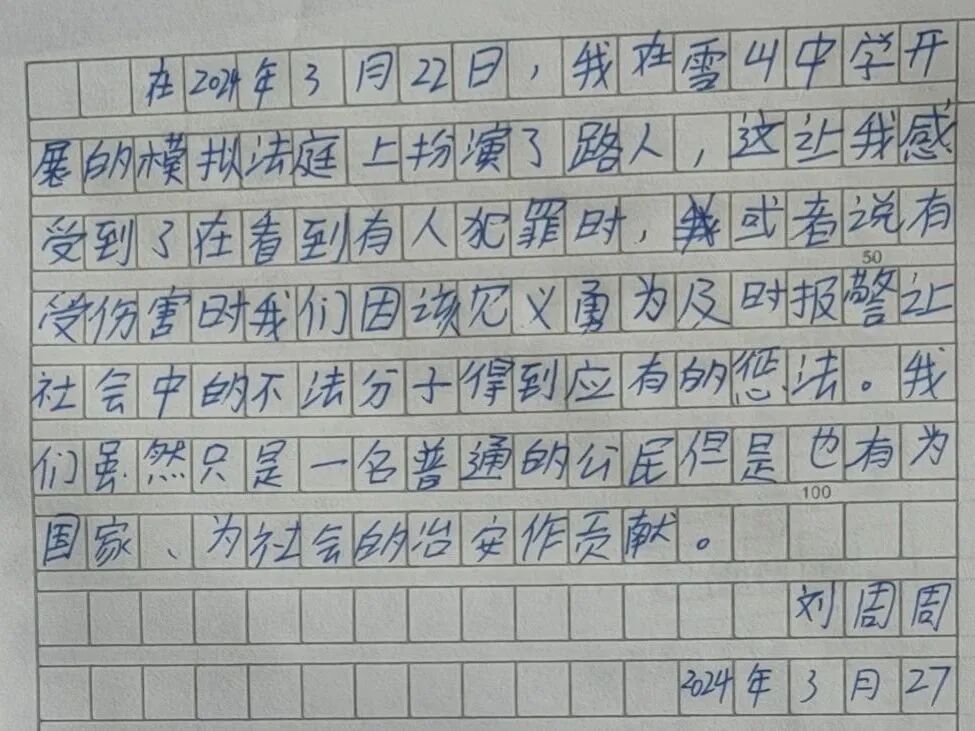 在2024年3月22日,我在雪山中学开
展的模拟法庭上扮演了路人,这让我感
受到了在看到有人犯罪时,或者说有
50
受伤害时我们因该见义勇为及时报警让
社会中的不法分子得到应有的惩法。我
们虽然只是一名普通的公民但是也有为
100
国家、为社会的治安作贡献。
刘周周
2024年3月27